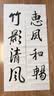 惠風和暢
竹影清風